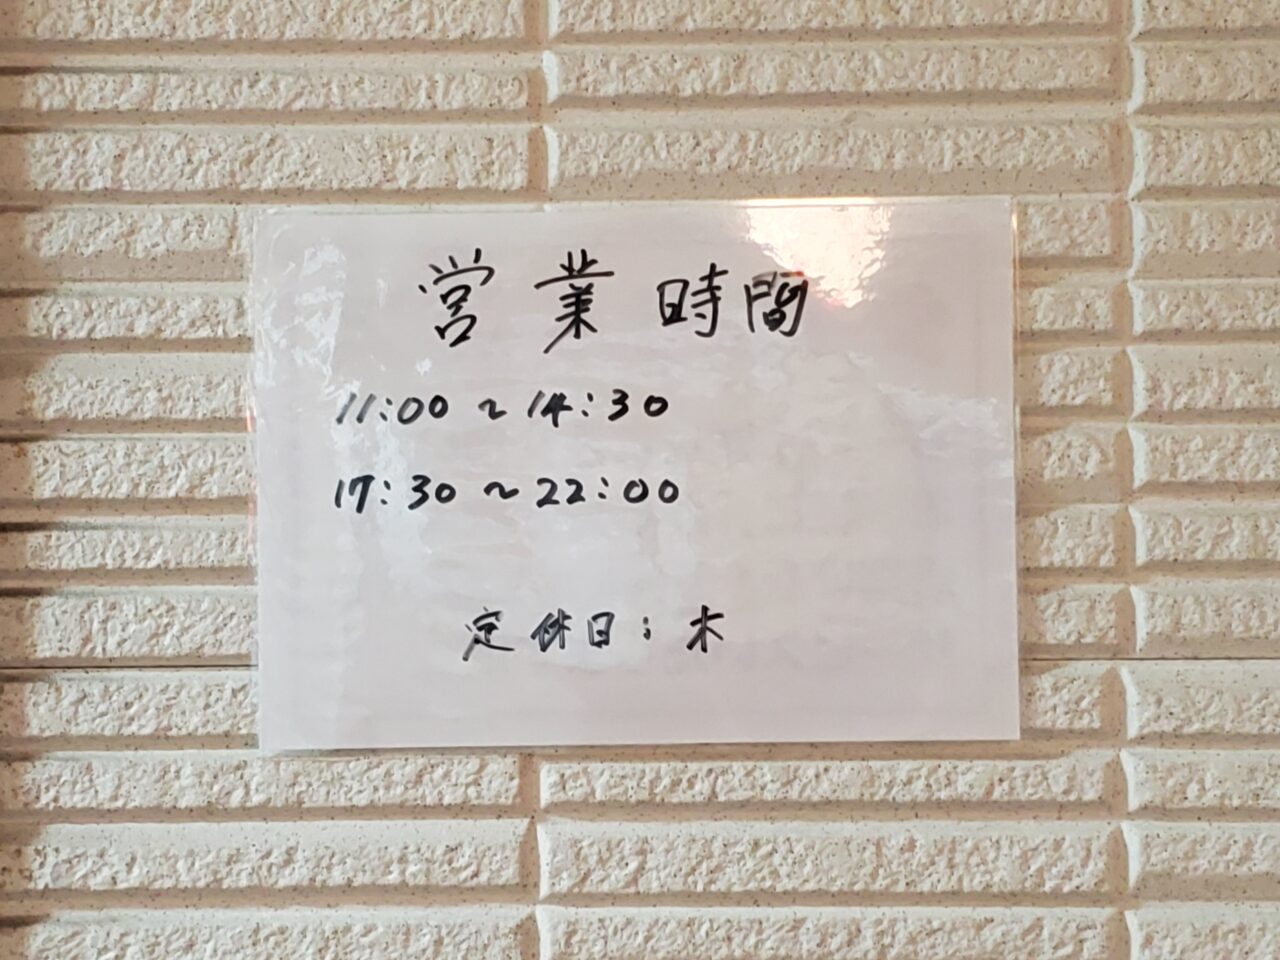 営業時間
11:00～14:30
17:30～22:00
定休日：木